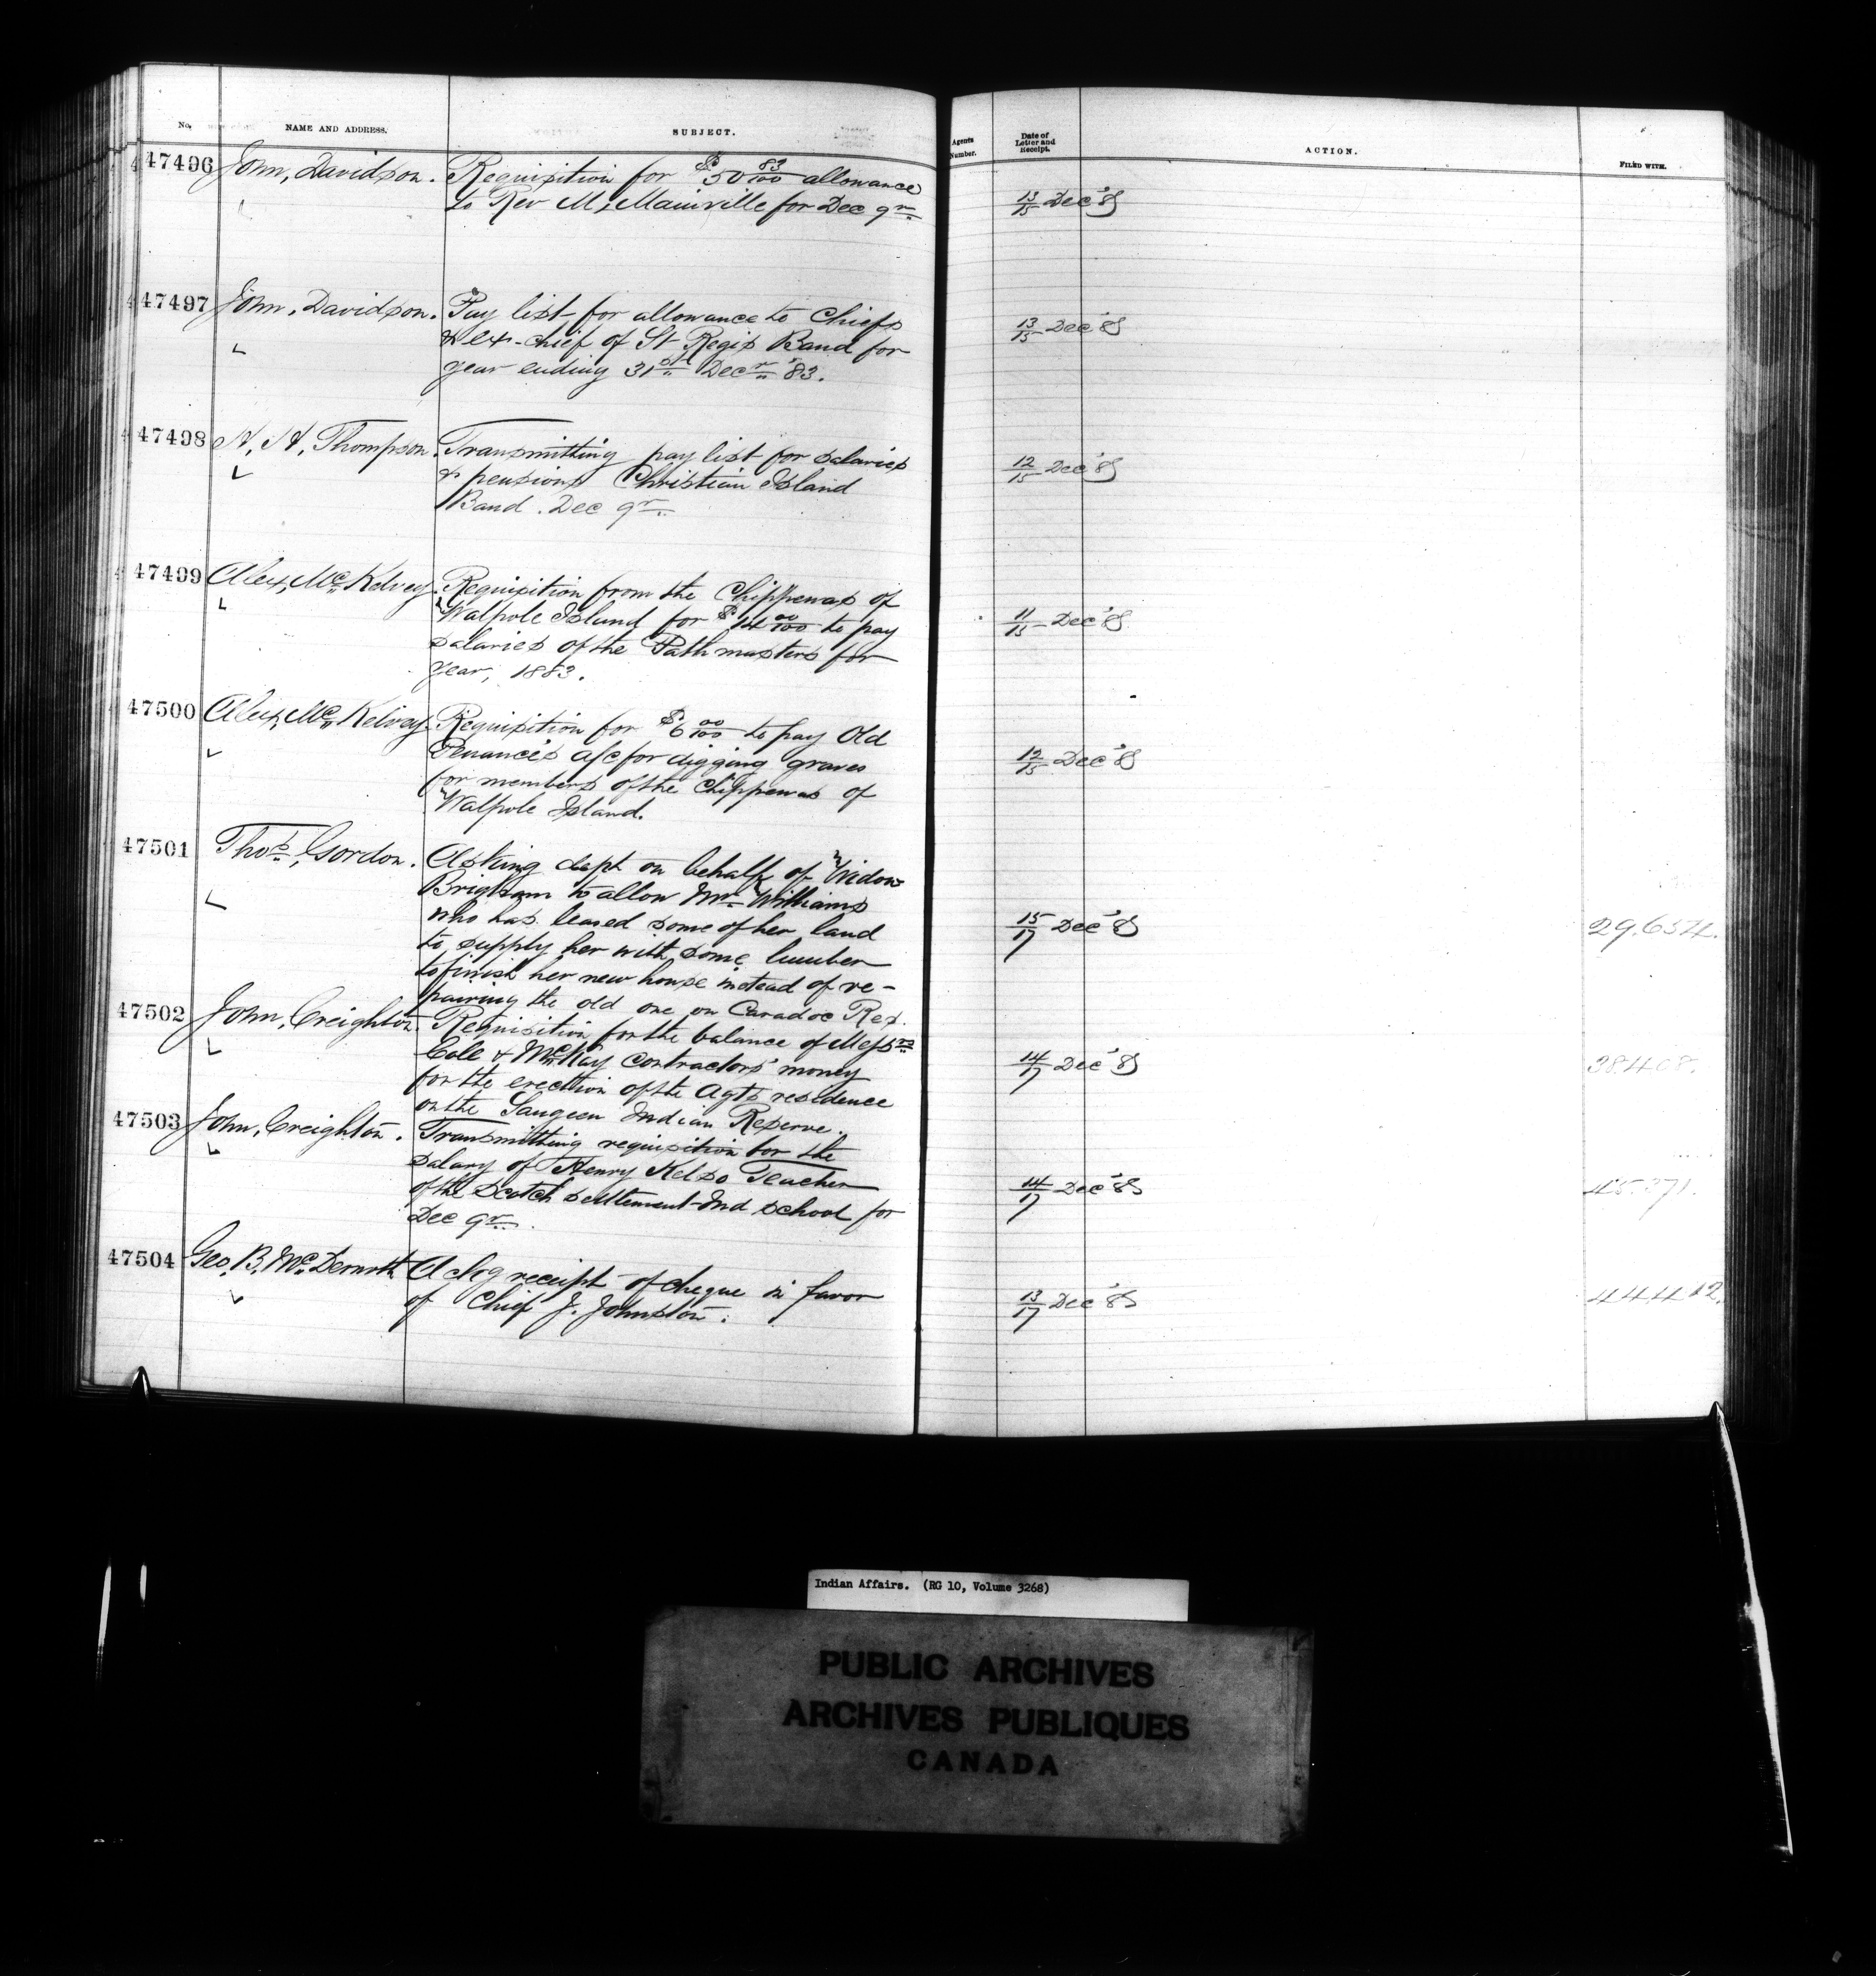 No. NAME AND ADDRESS. SUBJECT. Agents Number. Date of Letter and Receipt. ACTION. FILED WITH.
47496 John, Davidson. Requisition for $50 83/100 allowance 13/15 Dec '83
to Rev M, Mainville for Dec qr
47497 John, Davidson. Pay list for allowance to Chiefs 13/15 Dec '83
& ex-chief of St Regis Band for
year ending 31st Decr '83.
47498 A, A, Thompson. Transmitting pay list for salaries 12/15 Dec '83
& pensions Christian Island
Band. Dec qr
47499 Alex, McKelvey. Requisition from the Chippewas of 11/15 Dec '83
Walpole Island for $14 00/100 to pay
salaries of the Pathmasters for
year, 1883.
47500 Alex, McKelvey. Requisition for $6 00/100 to pay Old 12/15 Dec '83
a/c for digging graves
for members of the Chippewas of
Walpole Island.
47501 Thos, Gordon. Asking dept on behalf of Widow
Brigham to allow Mr Williams
who has leased some of her land 15/17 Dec '83 29,654.
to supply her with some lumber
to finish her new house instead of re-
pairing the old one on Caradoc Res.
47502 John, Creighton. Requisition for the balance of Messrs
Cole & McKay contractors' money 14/17 Dec '83 38408.
for the erection of the Agts residence
on the Saugeen Indian Reserve.
47503 John, Creighton. Transmitting requisition for the
salary of Henry Kelso Teacher
of the Scotch settlement Ind school for 14/17 Dec '83 45.371.
Dec qr
47504 Geo, B, McDermott Ackg receipt of cheque in favor 13/17 Dec '83 44412.
of Chief J. Johnston.
Indian Affairs. (RG 10, Volume 3268)
PUBLIC ARCHIVES
ARCHIVES PUBLIQUES
CANADA